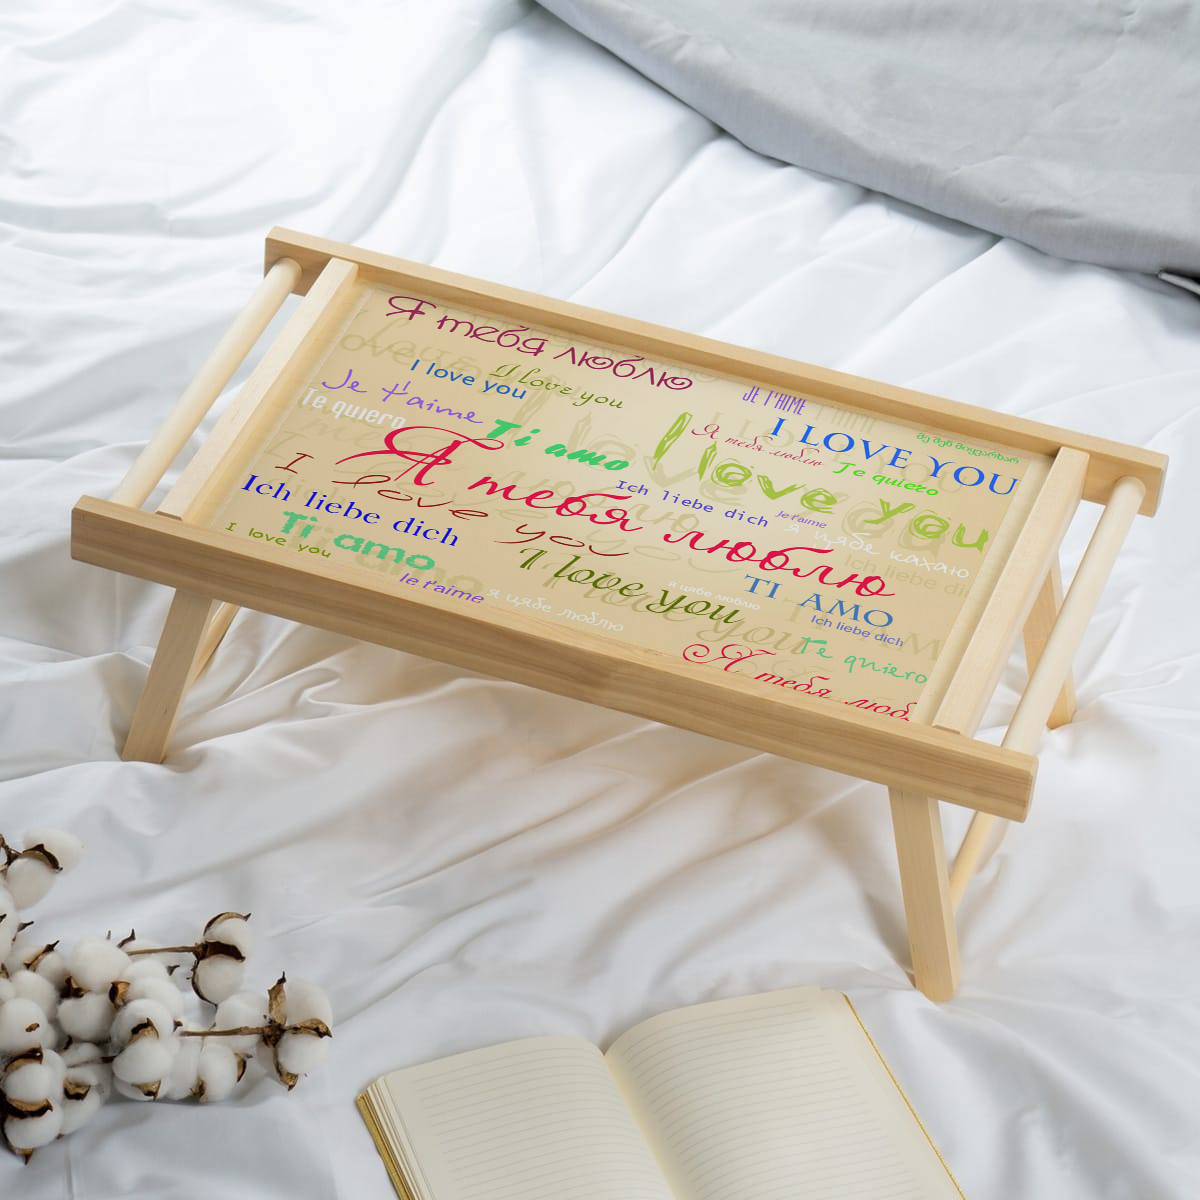 Я тебя люблю
I love you
I love you
Je t'aime
Te quiero
Ti amo
JE T'AIME
I LOVE YOU
Я тебя люблю
Te quiero
I love you
Я тебя люблю
I love you
Ich liebe dich
Je t'aime
Я цябе кахаю
Ich liebe dich
Ich liebe dich
Ti amo
I love you
Je t'aime
я цябе люблю
I love you
я цябе люблю
TI AMO
Ich liebe dich
Te quiero
Я тебя люб